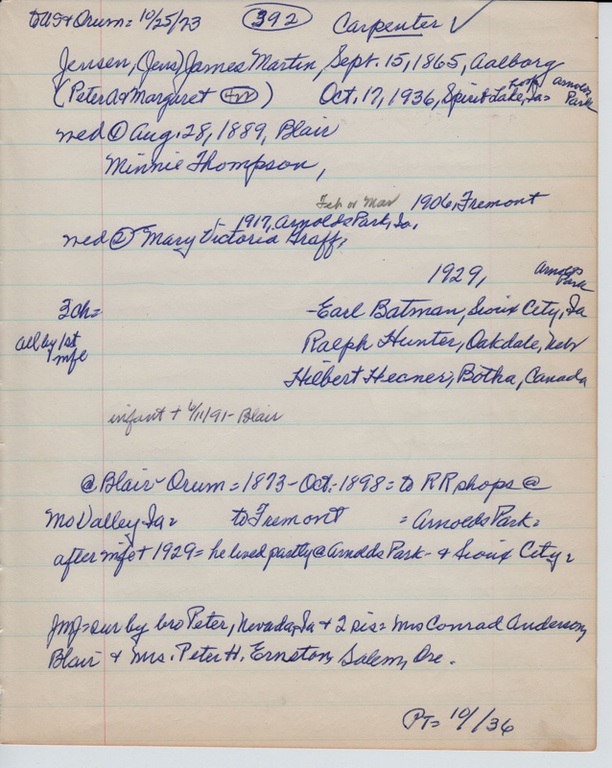 to US & Orum = 10/25/73 392 Carpenter ✓
Jensen, (Jens) James Martin, Sept. 15, 1865, Aalborg
(Peter A & Margaret) Oct. 17, 1936, Spirit Lake, Ia = Arnolds Park
wed ① Aug. 28, 1889, Blair
Minnie Thompson,
Feb or Mar 1906, Fremont
1917, Arnolds Park, Ia,
wed ② Mary Victoria Graff,
1929, Arnolds Park
3 ch = -Earl Batman, Sioux City, Ia
all by 1st Ralph Hunter, Oakdale, Neb
mfe Hilbert Hecner, Botha, Canada
infant + 6/11/91 - Blair
@ Blair - Orum = 1873 - Oct. 1898 = to RR shops @
Mo Valley, Ia = to Fremont = Arnolds Park =
after mfe + 1929 = he lived partly @ Arnolds Park - & Sioux City =
JMJ = sur by bro Peter, Nevada, Ia & 2 sis = Mrs Conrad Anderson,
Blair & Mrs. Peter H. Ernston, Salem, Ore.
PT = 10/36